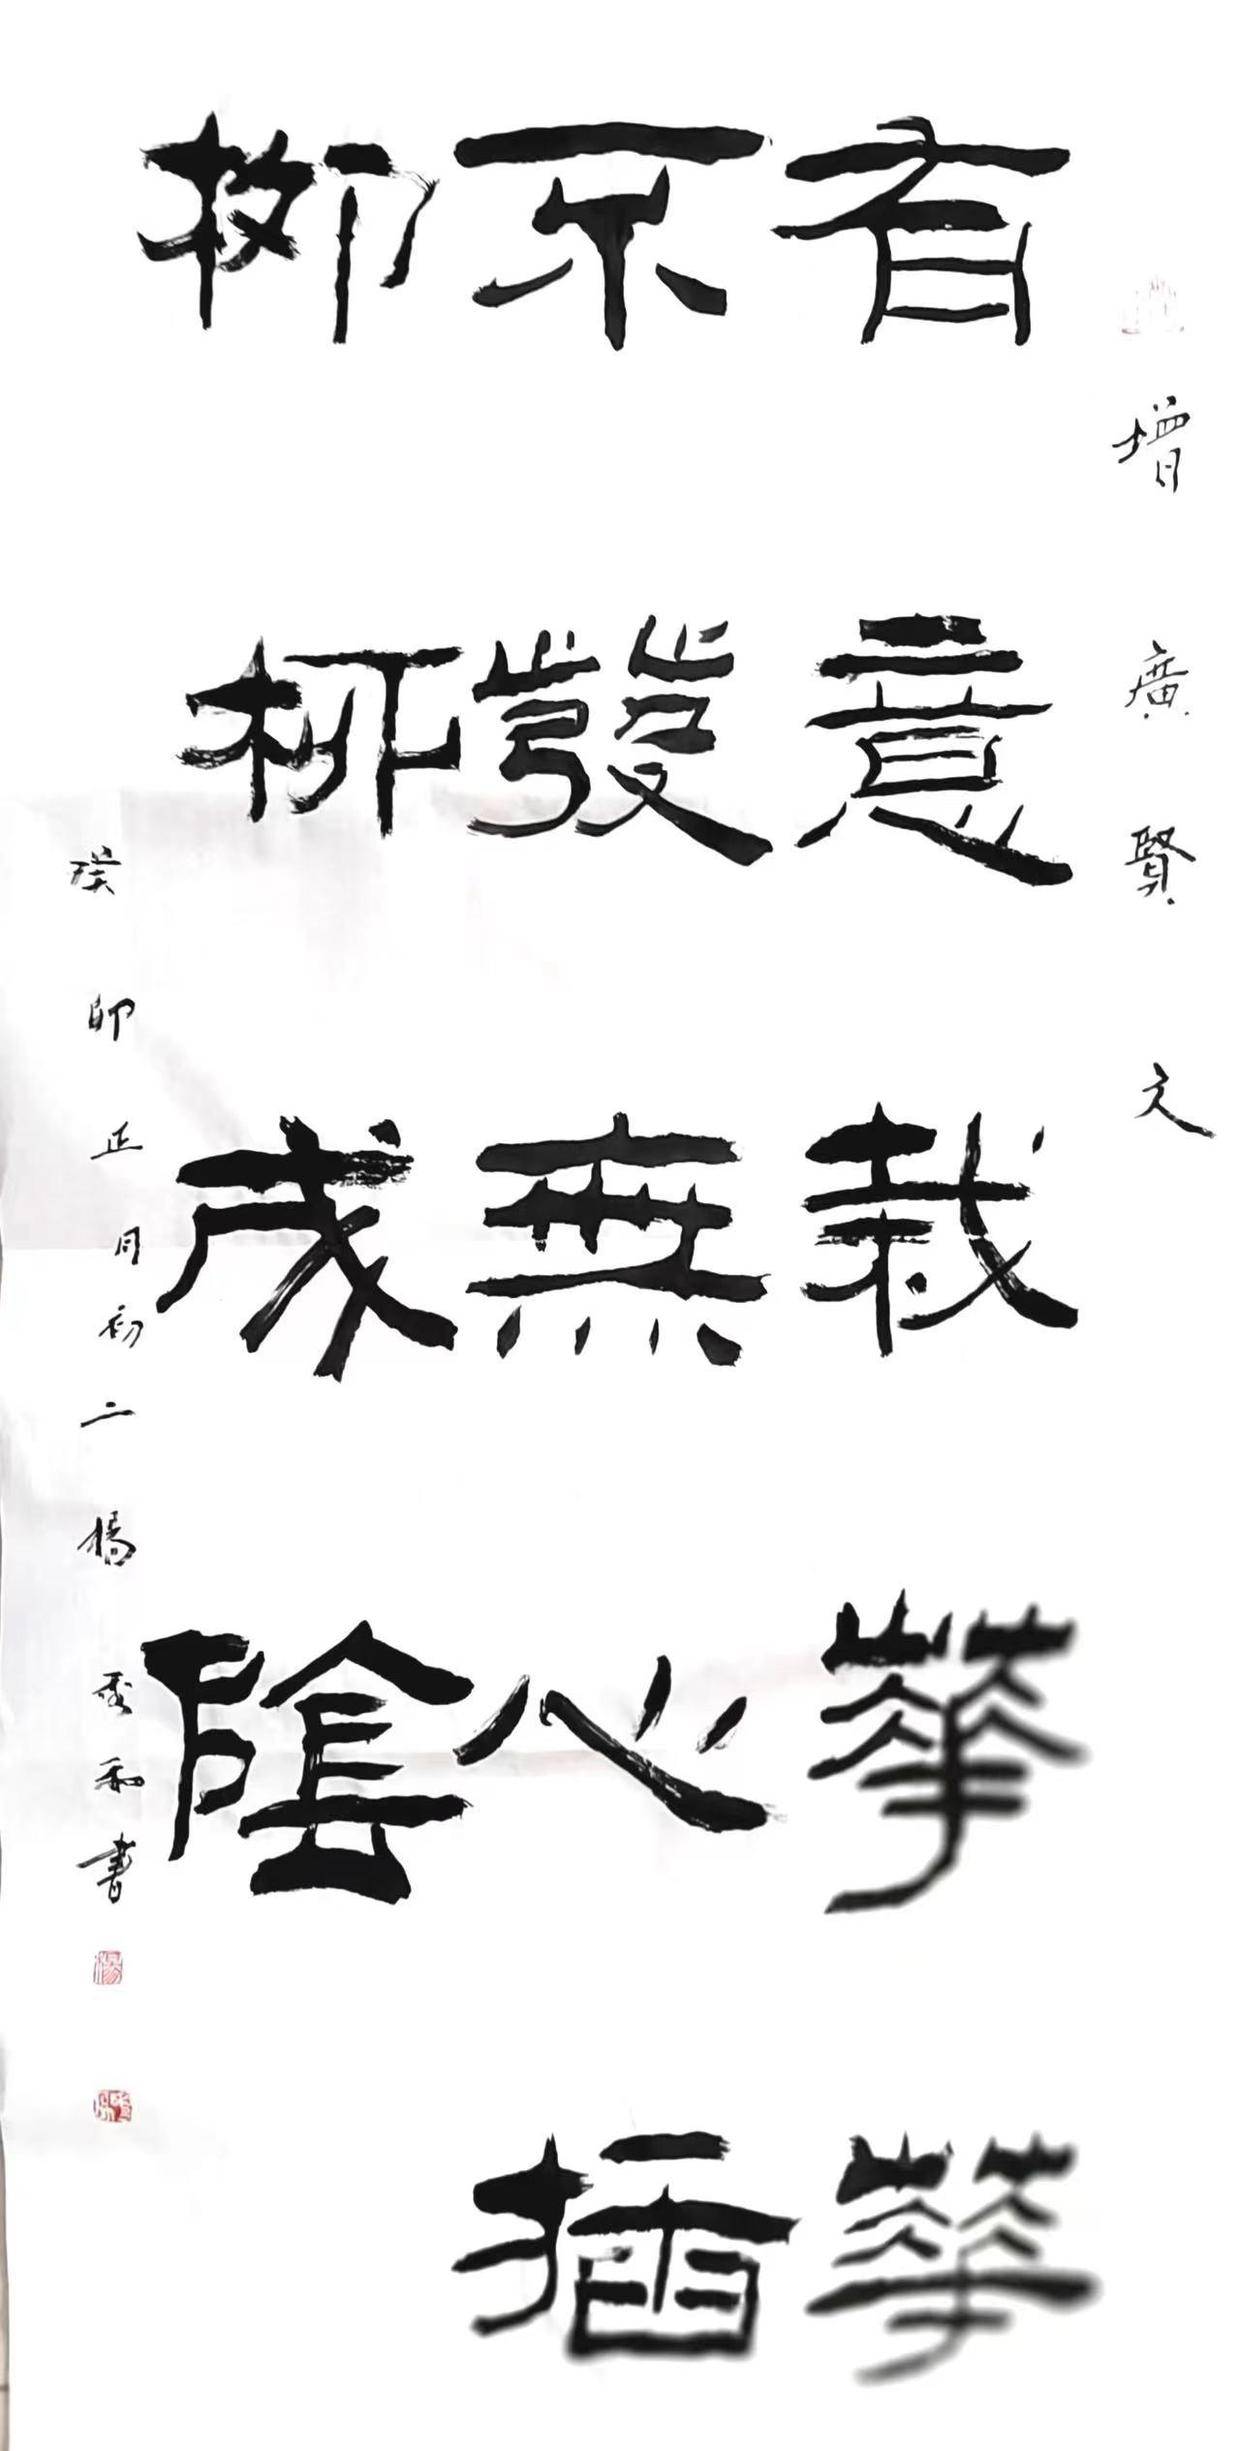 增廣賢文
有意栽華華
不發無心插
柳柳成陰
癸卯正月初二楊和書
楊